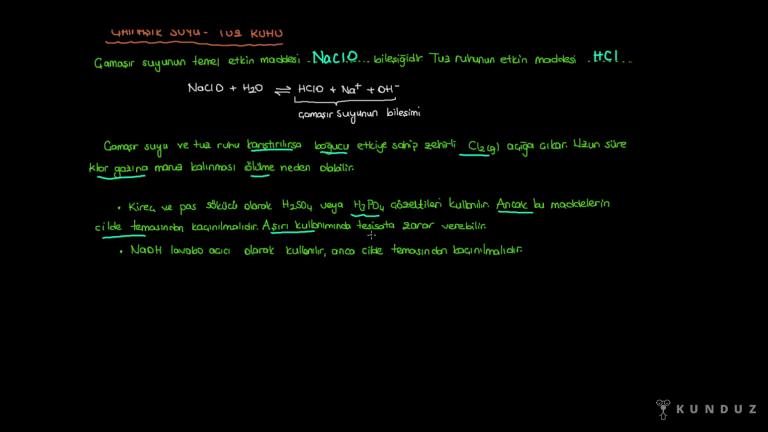 ÇAMAŞIR SUYU - TUZ RUHU
Çamaşır suyunun temel etkin maddesi .NaClO... bileşiğidir. Tuz ruhunun etkin maddesi .HCl...
NaClO + H2O ⇌ HClO + Na⁺ + OH⁻
çamaşır suyunun bileşimi
Çamaşır suyu ve tuz ruhu karıştırılırsa boğucu etkiye sahip zehirli Cl2(g) açığa çıkar. Uzun süre
klor gazına maruz kalınması ölüme neden olabilir.
• Kireç ve pas sökücü olarak H2SO4 veya H3PO4 çözeltileri kullanılır. Ancak bu maddelerin
cilde temasından kaçınılmalıdır. Aşırı kullanımında tesisata zarar verebilir.
• NaOH lavabo açıcı olarak kullanılır, anca cilde temasından kaçınılmalıdır.
KUNDUZ